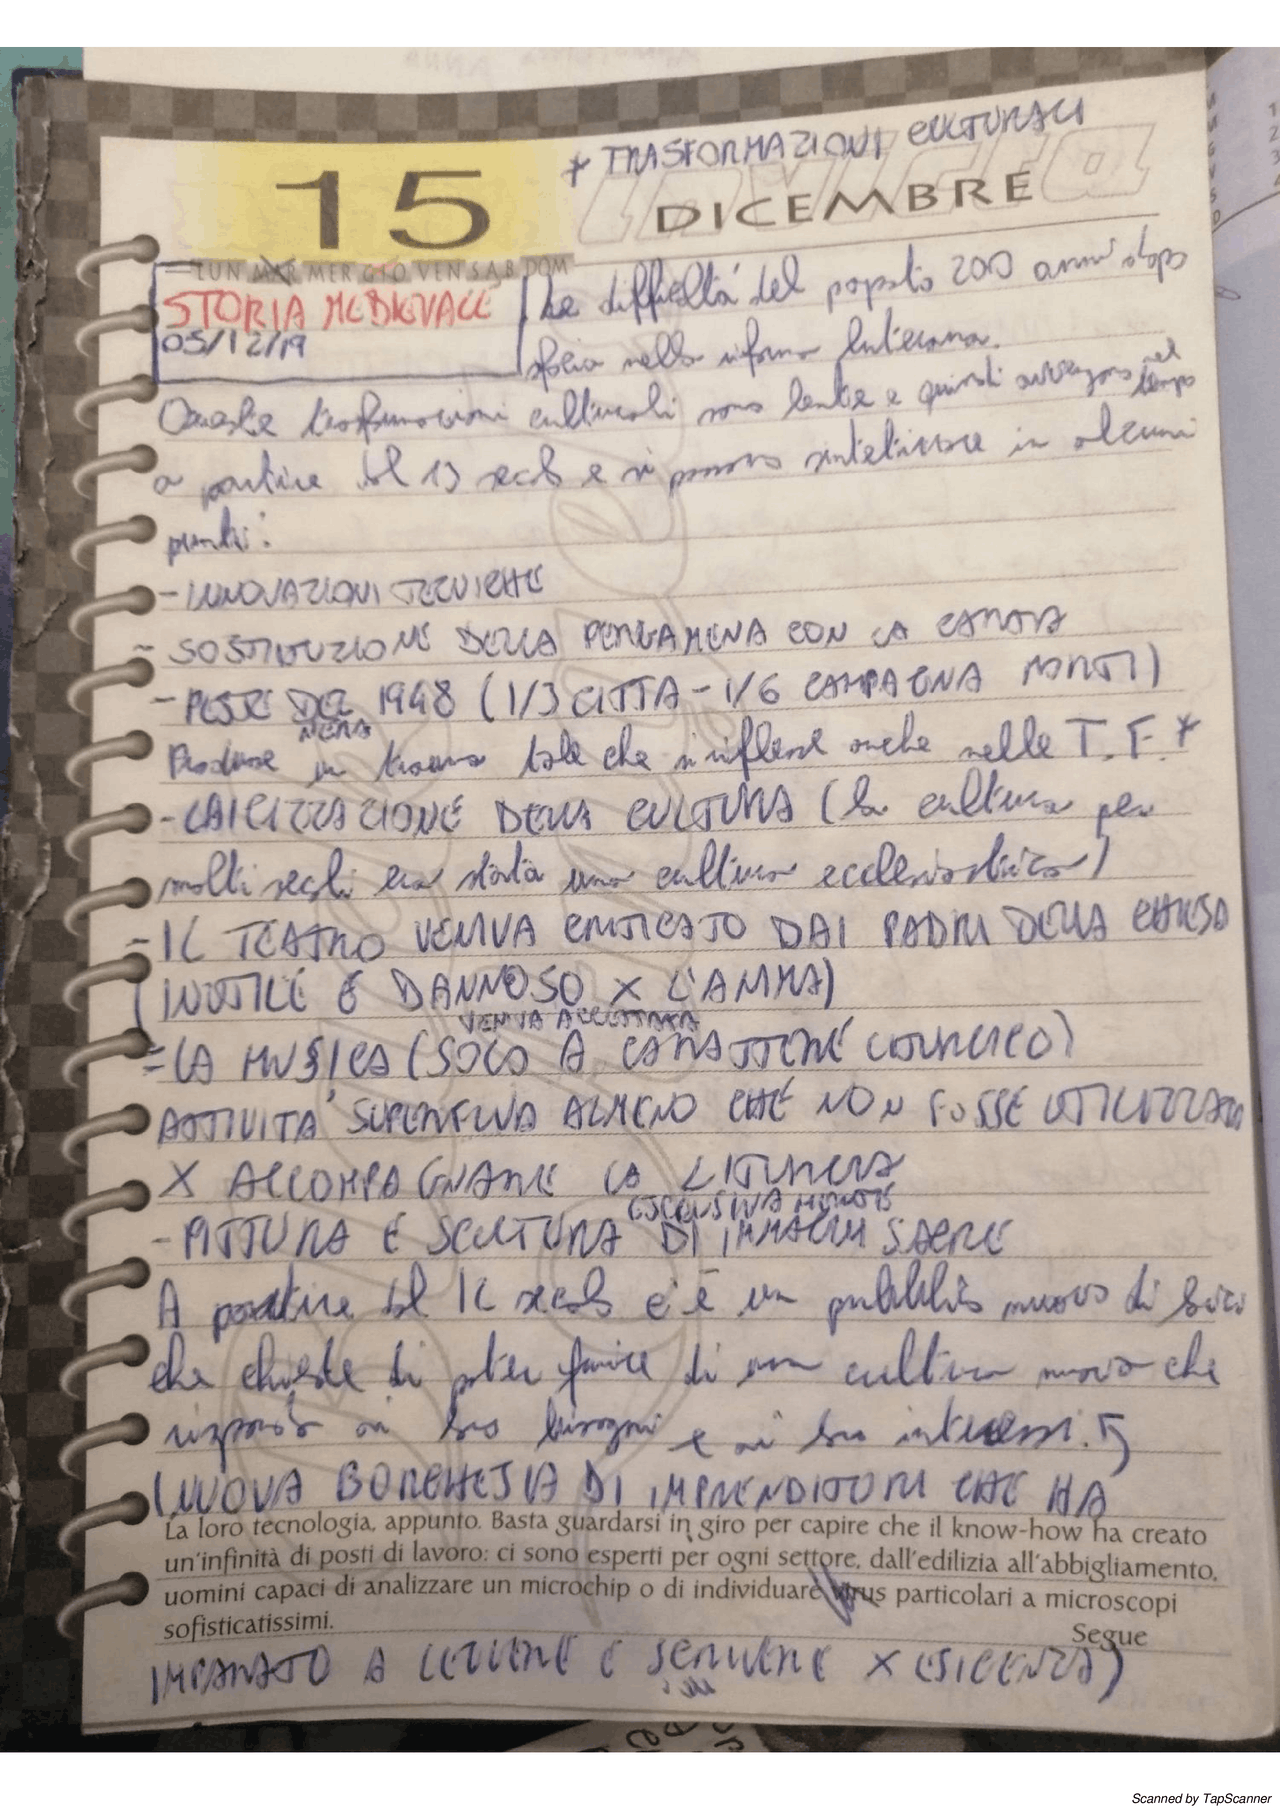 * TRASFORMAZIONI CULTURALI
15
DICEMBRE
LUN MAR MER GIO VEN SAB DOM
STORIA MEDIEVALE
05/12/19
Le difficoltà del popolo 200 anni dopo
sfocia nella riforma luterana.
Queste trasformazioni culturali sono lente e quindi avvengono nel tempo
a partire dal 13 secolo e si possono sintetizzare in alcuni
punti:
- INNOVAZIONI TECNICHE
- SOSTITUZIONE DELLA PERGAMENA CON LA CARTA
- PESTE NERA DEL 1948 (1/3 CITTA - 1/6 CAMPAGNA MORTI)
Produsse un trauma tale che si riflesse anche nelle T.F.*
- LAICIZZAZIONE DELLA CULTURA (la cultura per
molti secoli era stata una cultura ecclesiastica)
- IL TEATRO VENIVA CRITICATO DAI PADRI DELLA CHIESA
(INUTILE E DANNOSO X L'ANIMA)
VENIVA ACCETTATA
- LA MUSICA (SOLO A CARATTERE LITURGICO)
ATTIVITA' SUPERFLUA ALMENO CHE NON FOSSE UTILIZZATA
X ACCOMPAGNARE LA LITURGIA
ESCLUSIVAMENTE
- PITTURA E SCULTURA DI IMMAGINI SACRE
A partire dal IL secolo c'è un pubblico nuovo di laici
che chiede di poter fruire di una cultura nuova che
risponda ai loro bisogni e ai loro interessi.
(NUOVA BORGHESIA DI IMPRENDITORI CHE HA
La loro tecnologia, appunto. Basta guardarsi in giro per capire che il know-how ha creato
un'infinità di posti di lavoro: ci sono esperti per ogni settore, dall'edilizia all'abbigliamento,
uomini capaci di analizzare un microchip o di individuare virus particolari a microscopi
sofisticatissimi.
Segue
IMPARATO A LEGGERE E SCRIVERE X ESIGENZA)
Scanned by TapScanner